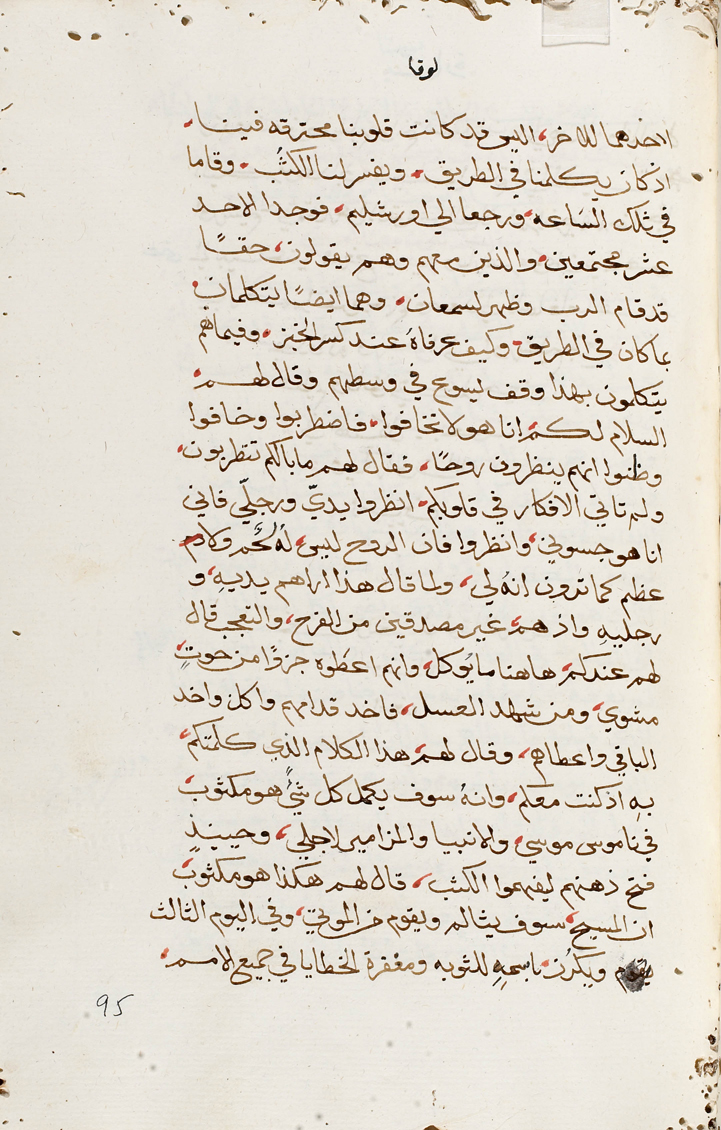 لوقا
احدهما للاخر، اليس قد كانت قلوبنا محترقه فينا.
اذ كان يكلمنا في الطريق. ويفسر لنا الكتُب. وقاما
في تلك السَاعه. ورجعا الي اورشليم. فوجدا الاحد
عشر مجتمعين. والذين معهم وهم يقولون، حقًا
قد قام الرب وظهر لسمعان. وهما ايضًا يتكلمان.
بما كان في الطريق. وكيف عرفاهُ عند كسر الخبز. وفيما هم
يتكلمون بهذا وقف يسوع في وسطهم وقال لهم.
السلام لكم. انا هو لا تخافوا. فاضطربوا وخافوا
وظنوا انهم ينظرون روحًا، فقال لهم ما بالكم تظربون.
ولم تاتي الافكار في قلوبكم. انظروا يديّ ورجليّ فاني
انا هو جسوني، وانظروا فان الروح ليس، لهُ لحُم ولا دم
عظم كما ترون انهُ لي، ولما قال هذا اراهم يديهِ، و
رجليهِ واذ هم، غير مصدقين من الفرح، والتعجب قال
لهم عندكم، هاهنا ما يُوكل، وانهم اعطَوه جزوًا من حوتٍ
مشوي، ومن شهد العسل، فاخد قدامهم واكل واخد
الباقي واعطاهم، وقال لهم، هذا الكلام الذي كلمتكم،
بهِ اذ كنت معكم، وانهُ سوف يكمل كل شيًء هو مكثوب،
في ناموس موسي، والانبيا والمزامير لاجلي، وحينيذٍ
فتح ذهنهم ليفهموا الكثب، قال لهم هكذا هو مكثوب،
ان المسيح، سوف يثالم ويقوم من الموتي، وفي اليوم الثالث
يقوم ويكرن باسمهِ للثوبه ومغفرة الخطايا في جميع الامم.
95